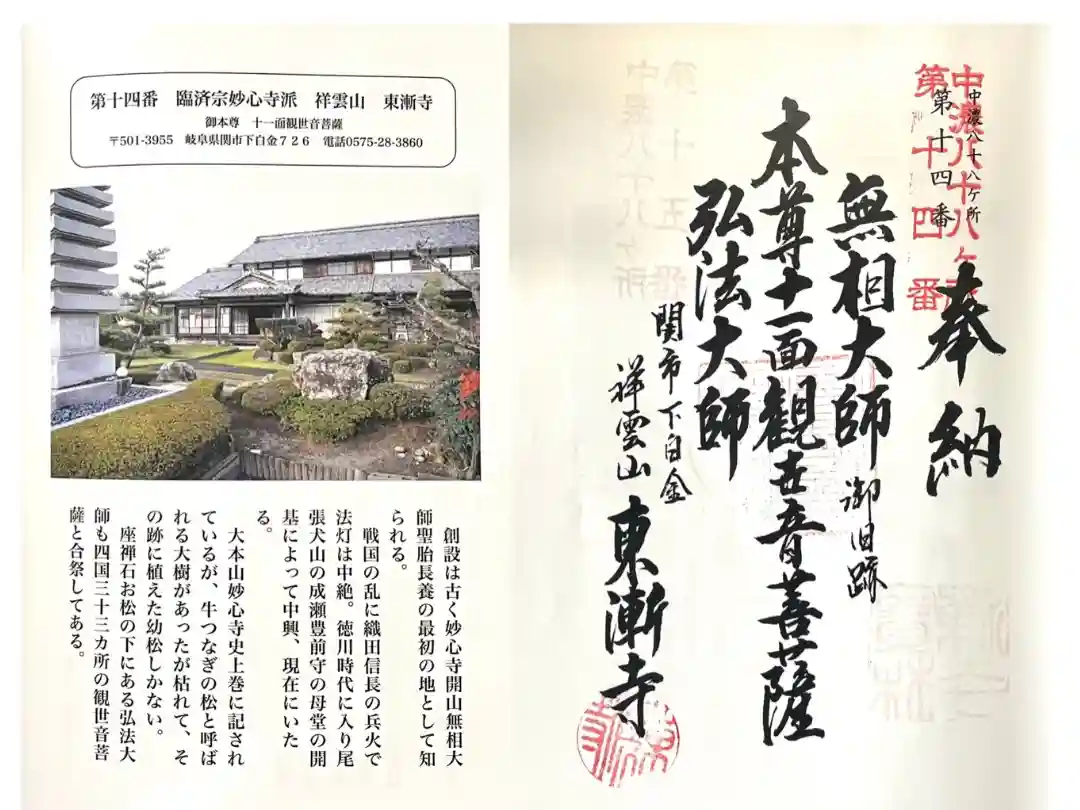 第十四番　臨済宗妙心寺派　祥雲山　東漸寺
御本尊　十一面観世音菩薩
〒501-3955　岐阜県関市下白金７２６　電話0575-28-3860
創設は古く妙心寺開山無相大
師聖胎長養の最初の地として知
られる。
戦国の乱に織田信長の兵火で
法灯は中絶。徳川時代に入り尾
張犬山の成瀬豊前守の母堂の開
基によって中興、現在にいた
る。
大本山妙心寺史上巻に記され
ているが、牛つなぎの松と呼ば
れる大樹があったが枯れて、そ
の跡に植えた幼松しかない。
座禅石お松の下にある弘法大
師も四国三十三カ所の観世音菩
薩と合祭してある。
中濃八十八ヶ所
第十四番
中濃八十八ヶ所
第十四番
奉納
無相大師 御旧跡
本尊十一面観世音菩薩
弘法大師
関市下白金
祥雲山 東漸寺